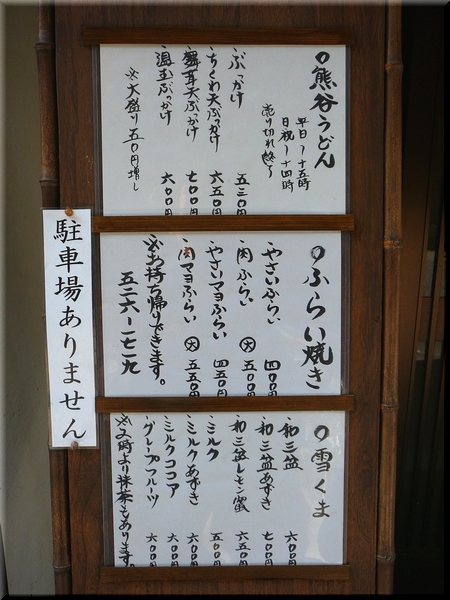 ○熊谷うどん
平日〜十五時
日祝〜十四時
売り切れ終了
・ぶっかけ 五三〇円
・ちくわ天ぶっかけ 六五〇円
・舞茸天ぶっかけ 七〇〇円
・温玉ぶっかけ 六〇〇円
※大盛り五〇円増し
○ふらい焼き
・やさいふらい 四〇〇円
・肉ふらい 大 五〇〇円
・やさいマヨふらい 四五〇円
・肉マヨふらい 大 五五〇円
※お持ち帰りできます。
五二六-一七二九
○雪くま
・和三盆 六〇〇円
・和三盆あずき 七〇〇円
・和三盆レモン蜜 六五〇円
・ミルク 五〇〇円
・ミルクあずき 六〇〇円
・ミルクココア 六〇〇円
・グレープフルーツ 六〇〇円
※2時より抹茶もあります。
駐車場ありません